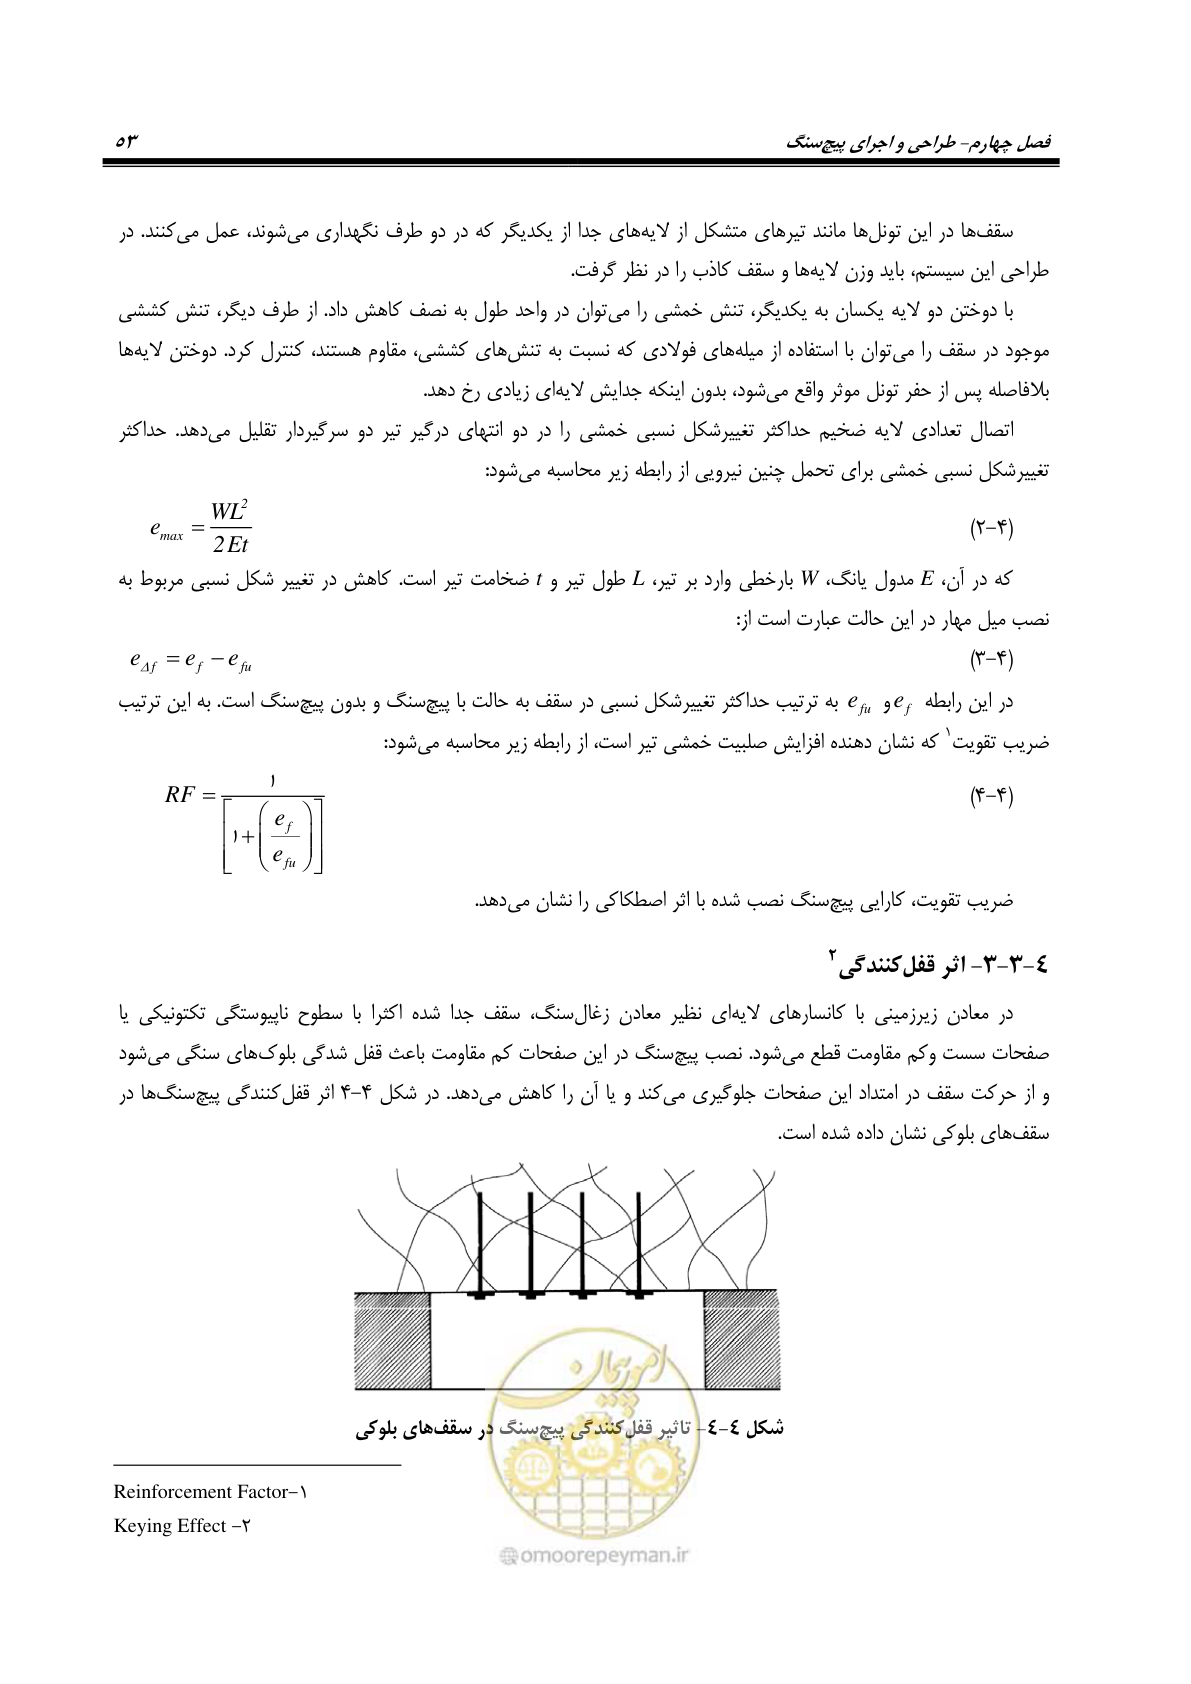 فصل چهارم- طراحی و اجرای پیچ‌سنگ ۵۳
سقف‌ها در این تونل‌ها مانند تیرهای متشکل از لایه‌های جدا از یکدیگر که در دو طرف نگهداری می‌شوند، عمل می‌کنند. در
طراحی این سیستم، باید وزن لایه‌ها و سقف کاذب را در نظر گرفت.
با دوختن دو لایه یکسان به یکدیگر، تنش خمشی را می‌توان در واحد طول به نصف کاهش داد. از طرف دیگر، تنش کششی
موجود در سقف را می‌توان با استفاده از میله‌های فولادی که نسبت به تنش‌های کششی، مقاوم هستند، کنترل کرد. دوختن لایه‌ها
بلافاصله پس از حفر تونل موثر واقع می‌شود، بدون اینکه جدایش لایه‌ای زیادی رخ دهد.
اتصال تعدادی لایه ضخیم حداکثر تغییرشکل نسبی خمشی را در دو انتهای درگیر تیر دو سرگیردار تقلیل می‌دهد. حداکثر
تغییرشکل نسبی خمشی برای تحمل چنین نیرویی از رابطه زیر محاسبه می‌شود:
(۴-۲) e_max = WL² / 2Et
که در آن، E مدول یانگ، W بارخطی وارد بر تیر، L طول تیر و t ضخامت تیر است. کاهش در تغییر شکل نسبی مربوط به
نصب میل مهار در این حالت عبارت است از:
(۴-۳) e_Δf = e_f − e_fu
در این رابطه e_f و e_fu به ترتیب حداکثر تغییرشکل نسبی در سقف به حالت با پیچ‌سنگ و بدون پیچ‌سنگ است. به این ترتیب
ضریب تقویت۱ که نشان دهنده افزایش صلبیت خمشی تیر است، از رابطه زیر محاسبه می‌شود:
(۴-۴) RF = ۱ / [۱+(e_f / e_fu)]
ضریب تقویت، کارایی پیچ‌سنگ نصب شده با اثر اصطکاکی را نشان می‌دهد.
۴-۳-۳- اثر قفل‌کنندگی۲
در معادن زیرزمینی با کانسارهای لایه‌ای نظیر معادن زغال‌سنگ، سقف جدا شده اکثرا با سطوح ناپیوستگی تکتونیکی یا
صفحات سست وکم مقاومت قطع می‌شود. نصب پیچ‌سنگ در این صفحات کم مقاومت باعث قفل شدگی بلوک‌های سنگی می‌شود
و از حرکت سقف در امتداد این صفحات جلوگیری می‌کند و یا آن را کاهش می‌دهد. در شکل ۴-۴ اثر قفل‌کنندگی پیچ‌سنگ‌ها در
سقف‌های بلوکی نشان داده شده است.
امور پیمان
شکل ۴-۴- تاثیر قفل‌کنندگی پیچ‌سنگ در سقف‌های بلوکی
Reinforcement Factor-۱
Keying Effect -۲
@omoorepeyman.ir